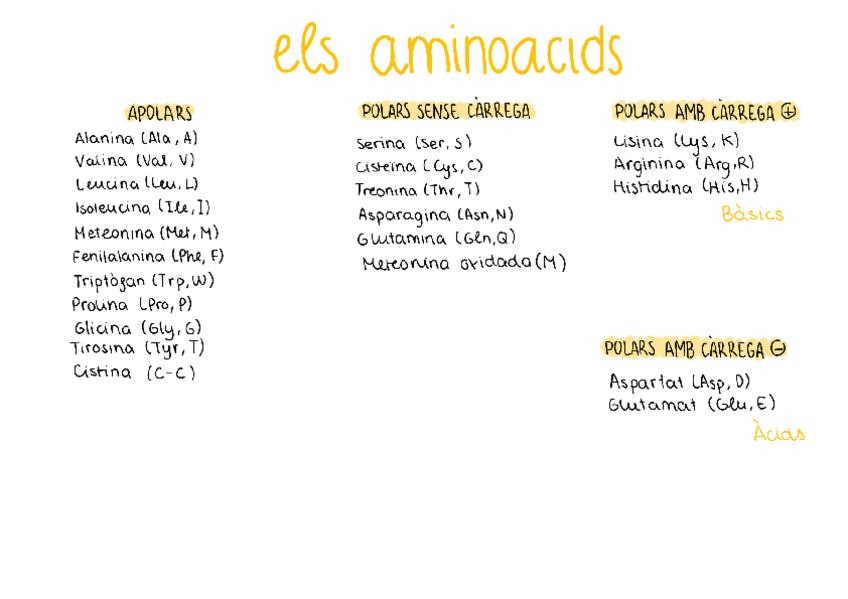 els aminoacids
APOLARS
Alanina (Ala, A)
Valina (Val, V)
Leucina (Leu, L)
Isoleucina (Ile, I)
Meteonina (Met, M)
Fenilalanina (Phe, F)
Triptògan (Trp, W)
Prolina (Pro, P)
Glicina (Gly, G)
Tirosina (Tyr, T)
Cistina (C-C)
POLARS SENSE CÀRREGA
Serina (Ser, S)
Cisteïna (Cys, C)
Treonina (Thr, T)
Asparagina (Asn, N)
Glutamina (Gln, Q)
Meteonina oxidada (M)
POLARS AMB CÀRREGA ⊕
Lisina (Lys, K)
Arginina (Arg, R)
Histidina (His, H)
Bàsics
POLARS AMB CÀRREGA ⊖
Aspartat (Asp, D)
Glutamat (Glu, E)
Àcids